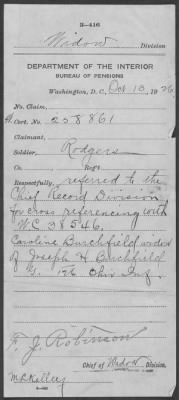 3-416
Widow Division
DEPARTMENT OF THE INTERIOR
BUREAU OF PENSIONS
Washington, D. C., Oct 13, 1926
No. Claim,
Cert. No. 258861
Claimant,
Soldier, Rodgers
Co. Reg't
Respectfully referred to the
Chief Record Division
for cross referencing with
W.C. 38546,
Caroline Burchfield widow
of Joseph H Burchfield
G. 196 Ohio Inf.
F. J. Robinson
Chief of Widow Division.